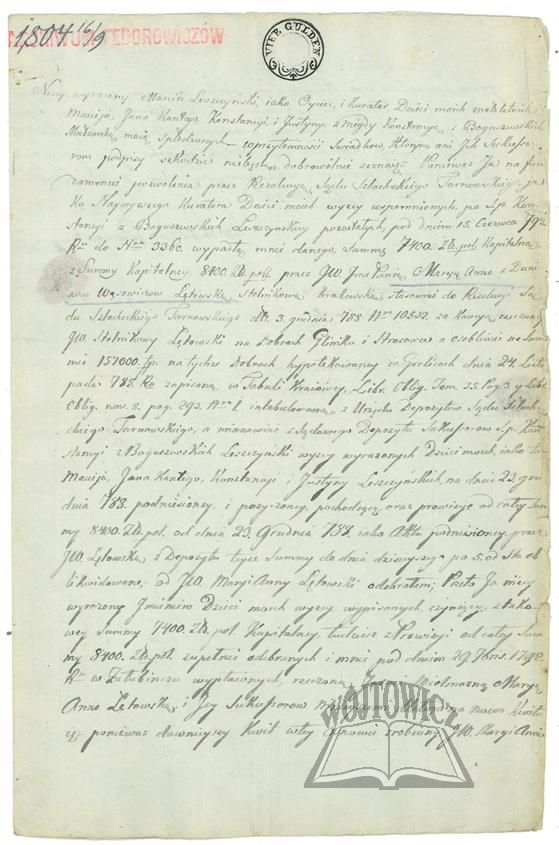 1,804 16/9
ARCHIWUM FEDOROWICZÓW
VIER GULDEN
Niżey wyrażony Marcin Leszczyński, iako Oyciec, i Kurator Dzieci moich małoletnich
Macieja, Jana Kantego, Konstancyi, i Justyny, z niegdy Konstancyą z Boguszewskich
Małżonką moią spłodzonych w przytomności Świadków,
dobrowolnie zeznaię, Ponieważ Ja na fun-
damencie pozwolenia przez Rezolucyą Sądu Szlacheckiego Tarnowskiego, ja-
ko Naywyższego Kuratora Dzieci moich wyżey wspomnionych, po Sp. Kon-
stancyi z Boguszewskich Leszczyński pozostałych, pod dniem 15. Czerwca 792
Ru do Nru 3360. wypadłą mnie danego, Summę 7400. Zł. pol. Kapitalną
z Summy Kapitalney 8400. Zł. pol. przez JW Jmć Panią Maryą Annę z Duni-
nów Wąsowiczów Łętowską Stolnikową Krakowską, stosownie do Rezolucyi Są-
du Szlacheckiego Tarnowskiego dto 3. grudnia 788. Nro 10532. za Kaucyą rzeczoney
JW Stolnikowy Łętowski na Dobrach Gliniku i Strozowce a osobliwie na Sum-
mie 157000. złp. na tychże Dobrach hypotekowaney w Gorlicach dnia 24. Listo-
pada 788. Ru zapisaną, w Tabuli Kraiowey, Libr. Oblig. Tom. 55. Pag. 3. y Libr.
Oblig. nov. 8. pag. 293. Nro 1. intabulowaną, z Urzędu Depozytów Sądu Szlache-
ckiego Tarnowskiego, a mianowicie z Sądowego Depozytu Sukcessorów Sp. Kon-
stancyi z Boguszewskich Leszczyński wyżey wyrażonych Dzieci moich, iako to:
Macieja, Jana Kantego, Konstancyi i Justyny Leszczyńskich, na dniu 23. gru-
dnia 788. podniesioney, i pożyczoney, pochodzącą, oraz prowizye od całey Sum-
my 8400. Zł. pol. od dnia 23. Grudnia 788. iako Aktu podniesioney przez
JW. Łętowską z Depozytu teyże Summy do dnia dzisieyszego po 5. od Sta ob-
likwidowane, od JW. Maryi Anny Łętowski odebrałem; Przeto Ja niżey
wyrażony Imieniem Dzieci moich wyżey wypisanych, czyniący, z tako-
wey Summy 7400. Zł. pol. Kapitalney tudzież z Prowizyi od całey Sum-
my 8400. Zł. pol. zupełnie odebranych i mnie pod dniem 29. 7bris. 1792.
Ru w Załubinczu wypłaconych, rzeczoną Jaśnie Wielmożną Maryą
Annę Łętowską i Jey Sukcessorów na nowo Kwitu-
ię ponieważ dawnieyszy kwit w tey sprawie zrobiony JW. Maryi Annie
WÓJTOWICZ